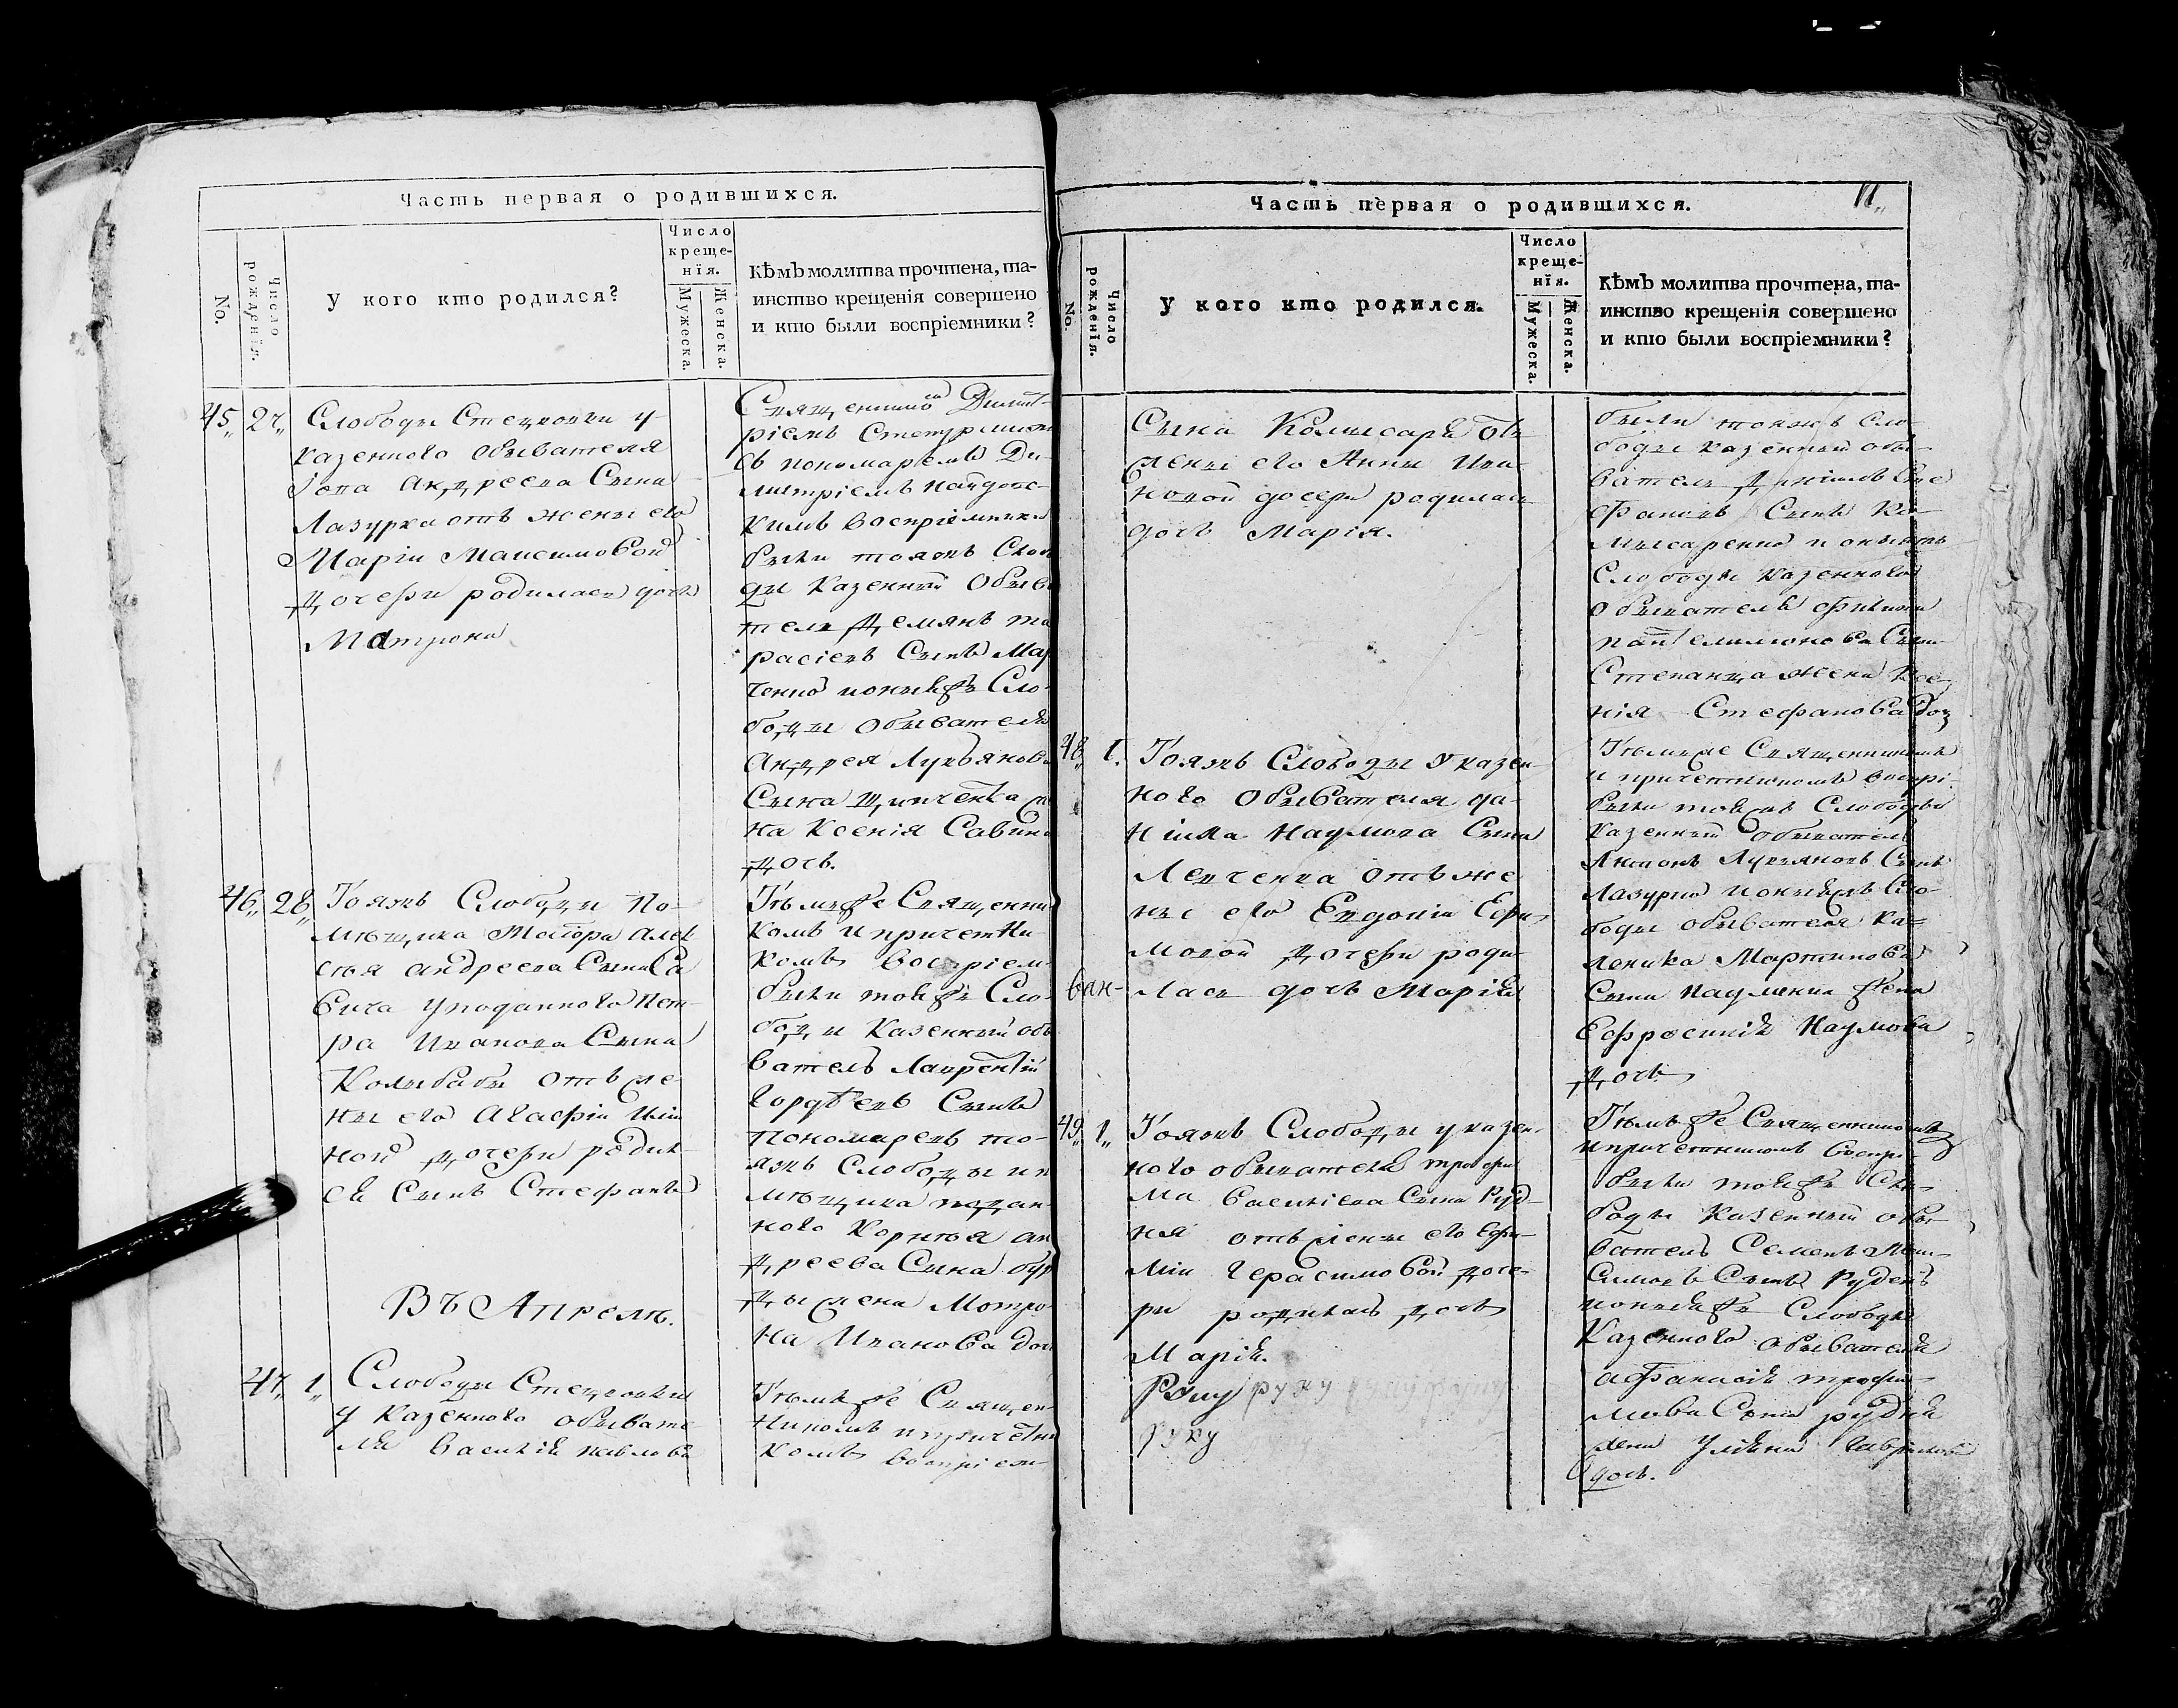 Часть первая о родившихся.
No.
Число рожденія.
У кого кто родился?
Число
креще-
нія.
Мужеска.
Женска.
Кѣмъ молитва прочтена, та-
инство крещенія совершено
и кто были воспріемники?
45 27 Слободы Стецковки у
казенного обывателя
Андреева Сына
Лазурка отъ жены его
Маріи Максимовой
Дочери родилась дочь
Матрона
Священникомъ Димит-
ріемъ
съ пономаремъ Ди-
митріемъ
кимъ воспріемники
были тояжъ Слобо
ды Казенный Обыва
тель Демянъ та
расіевъ Сынъ Мар
ченко ионыяжъ Сло-
боды обывателя
Андрея Лукьянова
Сына
на Ксенія Савина
Дочь.
46 28 Тояжъ Слободы По-
мѣщика Маіора Алек
сѣя андреева Сына Са
вича уподанного Пет-
ра Иванова Сына
Колыбабы отъ же-
ны его Агафіи
ной дочери родил-
ся Сынъ Стефанъ
Тѣмъже Священни
комъ и причетни-
комъ воспріем-
были тояжъ Сло-
боды Казенный обы
ватель Лаврентій
Гордѣевъ Сынъ
Пономаревъ то-
яжъ Слободы и п
мѣщика поддан-
ного Корнѣя ан
дреева Сына
жена Мотро-
на Иванова доч
Въ Апрелѣ.
47 1 Слободы Стецковки
у Казенного обывате-
ля Василія павлова
Тѣмъже Священ-
никомъ и причетни
комъ воспріем-
Часть первая о родившихся.
11
No.
Число рожденія.
У кого кто родился.
Число
креще-
нія.
Мужеска.
Женска.
Кѣмъ молитва прочтена, та-
инство крещенія совершено
и кто были воспріемники?
Сына Комысаря Отъ
жены его Анны Ива-
новой дочери родилась
дочь Марія.
были тояжъ Сло
боды казенный обы-
ватель Даніилъ Сте
фановъ Сынъ Ко-
мысаренко и оныяжъ
Слободы Казенного
Обывателя
Сына
Степанца жена Ксе-
нія Стефанова доч
48 1. Тояжъ Слободы У казен-
ного Обывателя да-
ніила Наумова Сына
Левченка отъ же
ны его Евдокіи Ефи-
мовой дочери роди-
лась дочь Марія
Тѣмже Священникомъ
и причетникомъ воспрі-
были тояжъ Слободы
казенный обыватель
Антонъ Лукьяновъ Сынъ
Лазурко ионыяжъ Сло-
боды обывателя Ка-
леника Мартинова
Сына Жена
Ефросинія Наумова
дочь
49 1 Тояжъ Слободы у казен-
ного обывателя трофи
ма Василіева Сына Руд-
ня отъ жены его Ефи-
міи Герасимовой доче-
ри родилась дочь
Марія.
руку
руку
Тѣмъже Священникомъ
и причетникомъ воспрі-
были тояжъ Сло-
боды Казенный обы-
ватель Семенъ Мак-
симовъ Сынъ Руденъ
ионыяжъ Слободы
Казенного обывателя
афанасія трофи-
мова Сына рудня
жена Уліяна Гаврилова
дочь.